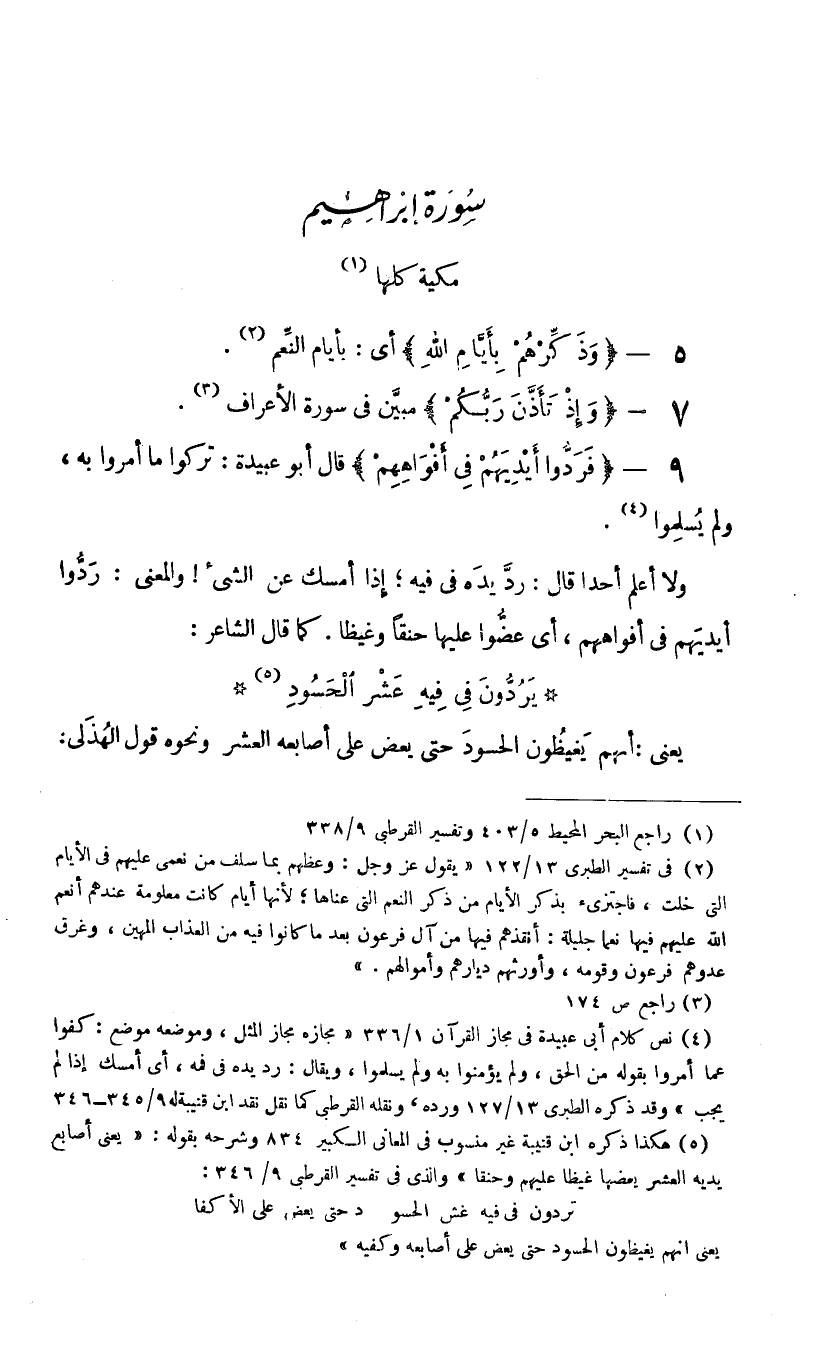 سُورَة إبْراهِيم
مكية كلها (١)
٥ — ﴿ وَذَكِّرْهُمْ بِأَيَّامِ اللهِ ﴾ أى : بأيام النِّعم (٢) .
٧ — ﴿ وَإِذْ تَأَذَّنَ رَبُّكُمْ ﴾ مبيَّن فى سورة الأعراف (٣) .
٩ — ﴿ فَرَدُّوا أَيْدِيَهُمْ فِى أَفْوَاهِهِمْ ﴾ قال أبو عبيدة : تركوا ما أمروا به ،
ولم يُسلِموا (٤) .
ولا أعلم أحدا قال : ردَّ يدَه فى فيه ؛ إذا أمسك عن الشىء ! والمعنى : رَدُّوا
أيديَهم فى أفواههم ، أى عضُّوا عليها حنقاً وغيظا . كما قال الشاعر :
* يَرُدُّونَ فِى فِيهِ عَشْرَ الْحَسُودِ (٥) *
يعنى : أنهم يَغيظُون الحسودَ حتى يعض على أصابعه العشر ونحوه قول الهُذَلى:
(١) راجع البحر المحيط ٤٠٣/٥ وتفسير القرطبى ٣٣٨/٩
(٢) فى تفسير الطبرى ١٢٢/١٣ « يقول عز وجل : وعظهم بما سلف من نعمى عليهم فى الأيام
التى خلت ، فاجتزىء بذكر الأيام من ذكر النعم التى عناها ؛ لأنها أيام كانت معلومة عندهم أنعم
الله عليهم فيها نعما جليلة : أنقذهم فيها من آل فرعون بعد ما كانوا فيه من العذاب المهين ، وغرق
عدوهم فرعون وقومه ، وأورثهم ديارهم وأموالهم . »
(٣) راجع ص ١٧٤
(٤) نص كلام أبى عبيدة فى مجاز القرآن ٣٣٦/١ « مجازه مجاز المثل ، وموضعه موضع : كفوا
عما أمروا بقوله من الحق ، ولم يؤمنوا به ولم يسلموا ، ويقال : رد يده فى فمه ، أى أمسك إذا لم
يجب » وقد ذكره الطبرى ١٢٧/١٣ ورده ، ونقله القرطبى كما نقل نقد ابن قتيبة له ٣٤٥/٩—٣٤٦
(٥) هكذا ذكره ابن قتيبة غير منسوب فى المعانى الكبير ٨٣٤ وشرحه بقوله : « يعنى أصابع
يديه العشر يعضها غيظا عليهم وحنقا » والذى فى تفسير القرطبى ٣٤٦/٩ :
تردون فى فيه غش الحسو د حتى يعض على الأكفا
يعنى انهم يغيظون الحسود حتى يعض على أصابعه وكفيه »